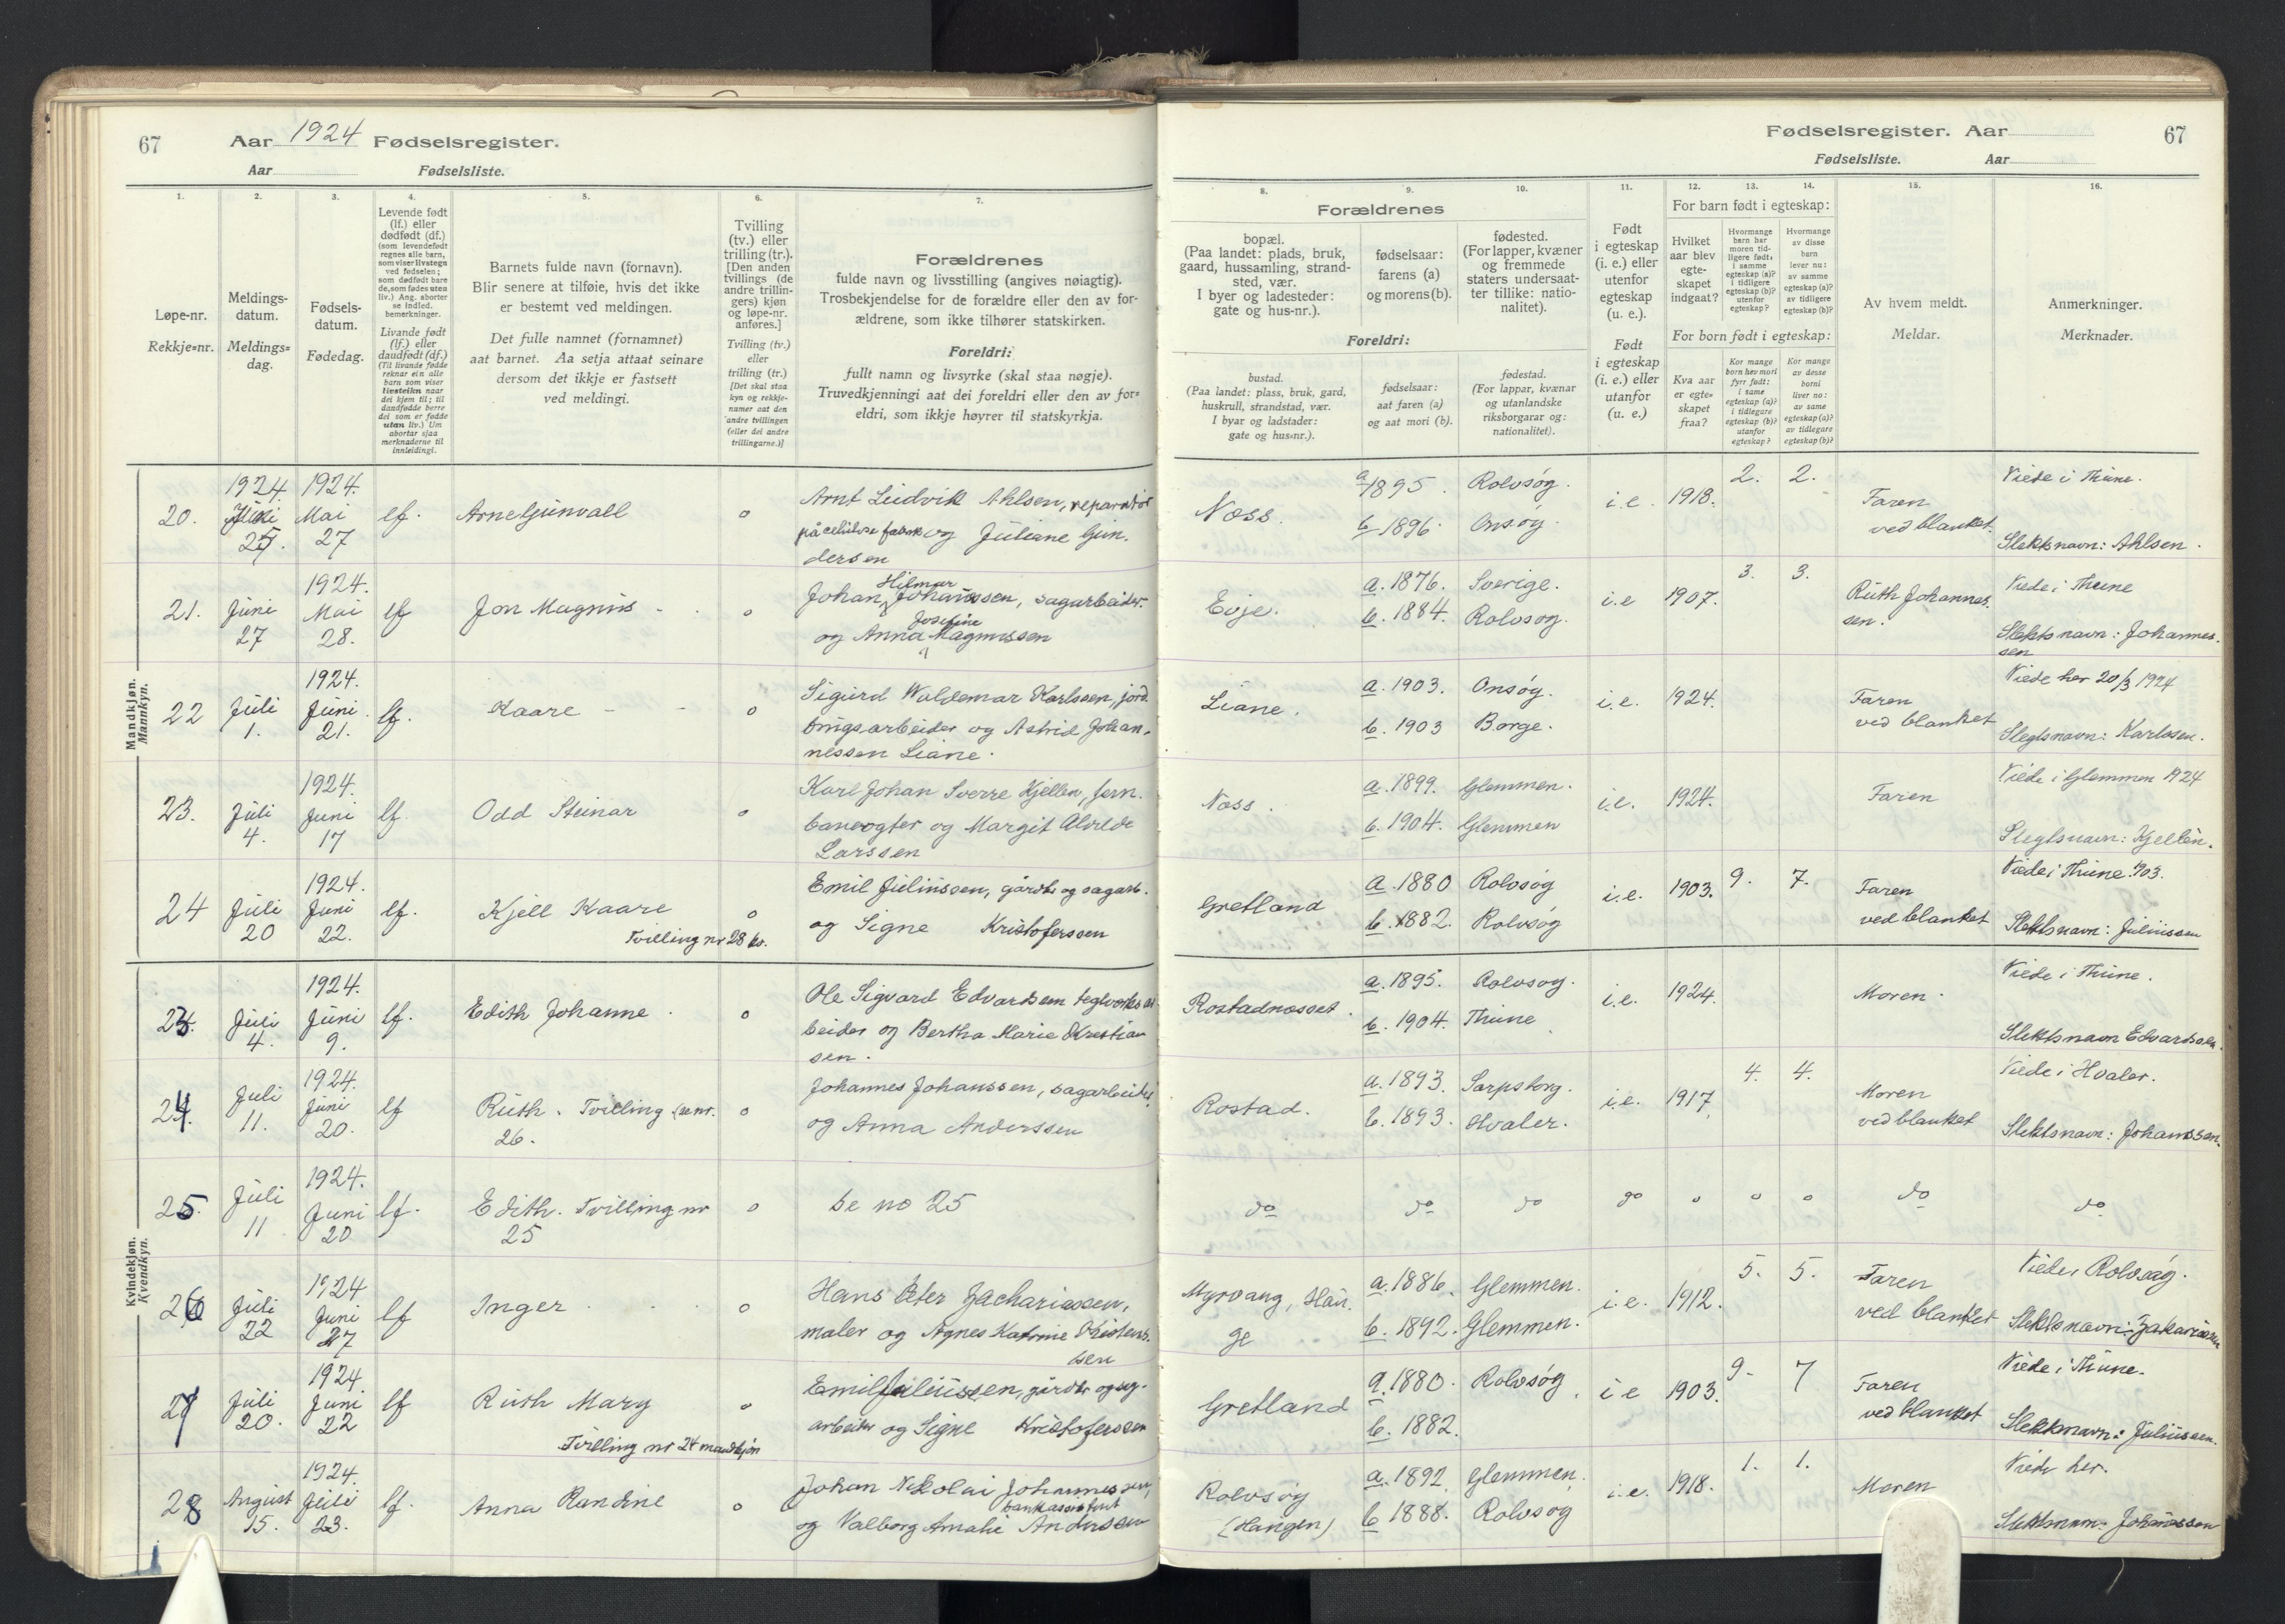 67 Aar 1924 Fødselsregister.
Aar Fødselsliste.
1. 2. 3. 4. 5. 6. 7.
Løpe-nr.
Rekkje=nr.
Meldings-
datum.
Meldings=
dag.
Fødsels-
datum.
Fødedag.
Levende født
(lf.) eller
dødfødt (df.)
(som levendefødt
regnes alle barn,
som viser livstegn
ved fødselen;
som dødfødt bare
de, som fødes uten
liv.) Ang. aborter
se indled.
bemerkninger.
Livande født
(lf.) eller
daudfødt (df.)
(Til livande fødde
reknar ein alle
barn som viser
livsteikn naar
dei kjem til; til
daudfødde berre
dei som er fødde
utan liv.) Um
abortar sjaa
merknaderne til
innleidingi.
Barnets fulde navn (fornavn).
Blir senere at tilføie, hvis det ikke
er bestemt ved meldingen.
Det fulle namnet (fornamnet)
aat barnet. Aa setja attaat seinare
dersom det ikkje er fastsett
ved meldingi.
Tvilling
(tv.) eller
trilling (tr.).
[Den anden
tvillings (de
andre trillin-
gers) kjøn
og løpe-nr.
anføres.]
Tvilling (tv.)
eller
trilling (tr.)
[Det skal staa
kyn og rekkje-
numer aat den
andre tvillingen
(eller dei andre
trillingarne.)]
Forældrenes
fulde navn og livsstilling (angives nøiagtig).
Trosbekjendelse for de forældre eller den av for-
ældrene, som ikke tilhører statskirken.
Foreldri:
fullt namn og livsyrke (skal staa nøgje).
Truvedkjenningi aat dei foreldri eller den av for=
eldri, som ikkje høyrer til statskyrkja.
Mandkjøn.
Mannkyn.
20. 1924. Juni 25. 1924. Mai 27 lf. Arne Gunvall o Arnt Ludvik Ahlsen, reparatør
på cellulose fabrik og Juliane Gun.
dersen
21. Juni 27 1924. Mai 28. lf Jon Magnus o Johan Hilmar Johanssen, sagarbeider.
og Anna Josefine Magnussen
22 Juli 1. 1924. Juni 21. lf. Kaare o Sigurd Waldemar Karlssen, jord
brugsarbeider og Astrid Johan-
nessen Liane.
23. Juli 4. 1924. Juni 17 lf. Odd Steinar o Karl Johan Sverre Kjellen, jern.
banevogter og Margit Alvilde
Larssen
24 Juli 20 1924. Juni 22. lf. Kjell Kaare o Emil Juliussen, gårdbr og sagarb.
Tvilling nr 28 kv. og Signe Kristoferssen
Kvindekjøn.
Kvendkyn.
23. Juli 4. 1924. Juni 9. lf. Edith Johanne o Ole Sigvard Edvardsen teglverksar
beider og Bertha Marie Kristian
sen.
24. Juli 11. 1924. Juni 20. lf Ruth. Tvilling (se nr. o Johannes Johanssen, sagarbeider
26. og Anna Anderssen
25. Juli 11 1924. Juni 20 lf. Edith. Tvilling nr o Se no 25
25
26 Juli 22 1924 Juni 27 lf Inger o Hans Peter Zachariassen,
maler og Agnes Katrine Kristens.
sen
27 Juli 20. 1924 Juni 22 lf Ruth Mary o Emil Juliussen, gårdbr og sag-
Tvilling nr 24 mandkjøn arbeider og Signe Kristoferssen
28 August 15. 1924. Juli 23. lf. Anna Randine o Johan Nikolai Johannessen,
bankassistent
og Valborg Amalie Andersen
Fødselsregister. Aar 67
Fødselsliste. Aar
8. 9. 10. 11. 12. 13. 14. 15. 16.
Forældrenes
bopæl.
(Paa landet: plads, bruk,
gaard, hussamling, strand-
sted, vær.
I byer og ladesteder:
gate og hus-nr.).
fødselsaar:
farens (a)
og morens (b).
fødested.
(For lapper, kvæner
og fremmede
staters undersaat-
ter tillike: natio-
nalitet).
Foreldri:
bustad.
(Paa landet: plass, bruk, gard,
huskrull, strandstad, vær.
I byar og ladstader:
gate og hus=nr.).
fødselsaar:
aat faren (a)
og aat mori (b).
fødestad.
(For lappar, kvænar
og utanlandske
riksborgarar og:
nationalitet).
Født
i egteskap
(i. e.) eller
utenfor
egteskap
(u. e.).
Født
i egteskap
(i. e.) eller
utanfor
(u. e.)
For barn født i egteskap:
Hvilket
aar blev
egte-
skapet
indgaat?
Hvormange
barn har
moren tid-
ligere født:
i samme
egteskap (a)?
i tidligere
egteskap (b)?
utenfor
egteskap?
Hvormange
av disse
barn
lever nu:
av samme
egteskap (a)?
av tidligere
egteskap (b)?
For born født i egteskap:
Kva aar
er egte=
skapet
fraa?
Kor mange
born hev mori
fyrr født:
i same
egteskap (a)?
i tidlegare
egteskap (b)?
utanfor
egteskap?
Kor mange
av desse
borni
liver no:
av same
egteskap (a)?
av tidlegare
egteskap (b)?
Av hvem meldt.
Meldar.
Anmerkninger.
Merknader.
Næss. a 1895. Rolvsøy. i.e. 1918. 2. 2. Faren Viede i Thune.
b 1896. Onsøy. ved blanket. Slektsnavn: Ahlsen.
Evje. a. 1876. Sverige. i.e 1907. 3. 3. Ruth Johannes. Viede i Thune
b. 1884. Rolvsøy. sen. Slektsnavn: Johannes.
sen
Liane. a. 1903. Onsøy. i.e. 1924. Faren Viede her 20/3 1924
b. 1903 Borge. ved blanket Slegtsnavn: Karlssen.
Næss. a. 1899. Glemmen. i.e. 1924. Faren Viede i Glemmen 1924
b. 1904. Glemmen Slegtsnavn: Kjellén.
Gretland a. 1880 Rolvsøy i.e. 1903. 9. 7. Faren Viede i Thune 1903.
b. 1882. Rolvsøy ved blanket Slektsnavn: Juliussen
Rostadnæsset. a. 1895. Rolvsøy. i.e. 1924. Moren. Viede i Thune.
b. 1904. Thune Slektsnavn Edvardsen.
Rostad. a. 1893. Sarpsborg. i.e. 1917. 4. 4. Moren Viede i Hvaler.
b. 1893. Hvaler. ved blanket Slektsnavn: Johanssen.
do do do do o o o do do
Myrvang, Hau. a. 1886. Glemmen. i.e. 1912. 5. 5. Faren Viede i Rolvsøy.
ge b. 1892. Glemmen. ved blanket Slektsnavn: Zakariassen
Gretland a. 1880. Rolvsøy. i e 1903. 9- 7 Faren Viede i Thune.
b. 1882. ved blanket Slektsnavn: Juliussen.
Rolvsøy a. 1892. Glemmen. i.e. 1918. 1. 1. Moren Viede her.
(Haugen) b 1888. Rolvsøy Slektsnavn: Johanssen